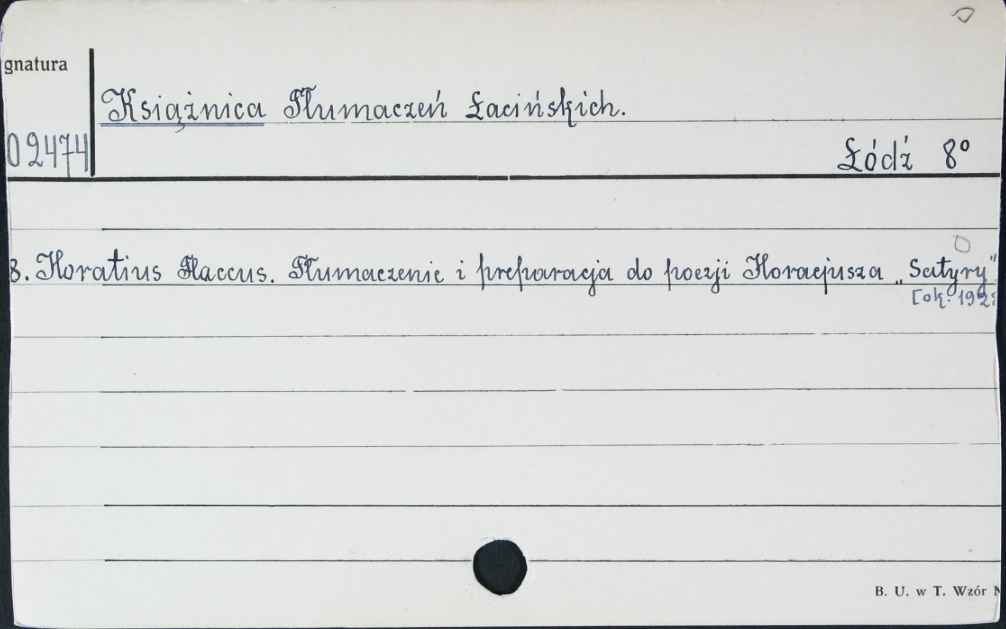 gnatura
Książnica Tłumaczeń Łacińskich.
02474
Łódź 8°
8. Horatius Flaccus. Tłumaczenie i preparacja do poezji Horacjusza „Satyry"
[ok. 192
B. U. w T. Wzór N